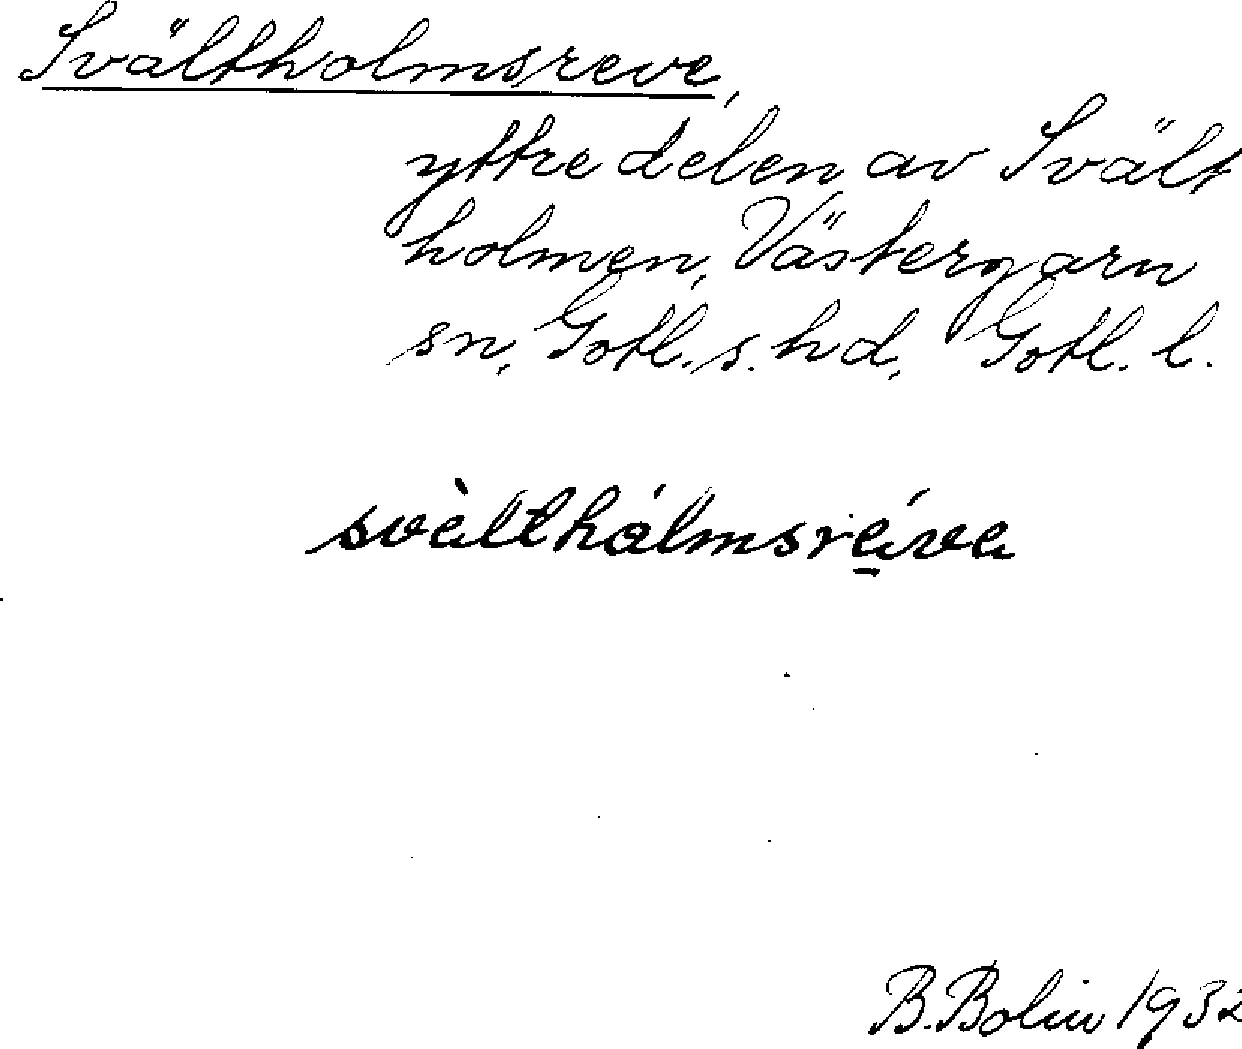 Svältholmsreve,
yttre delen av Svält
holmen, Västergarn
sn, Gotl. s. hd, Gotl. l.
svàlthálmsräíva
B. Bolin 1932